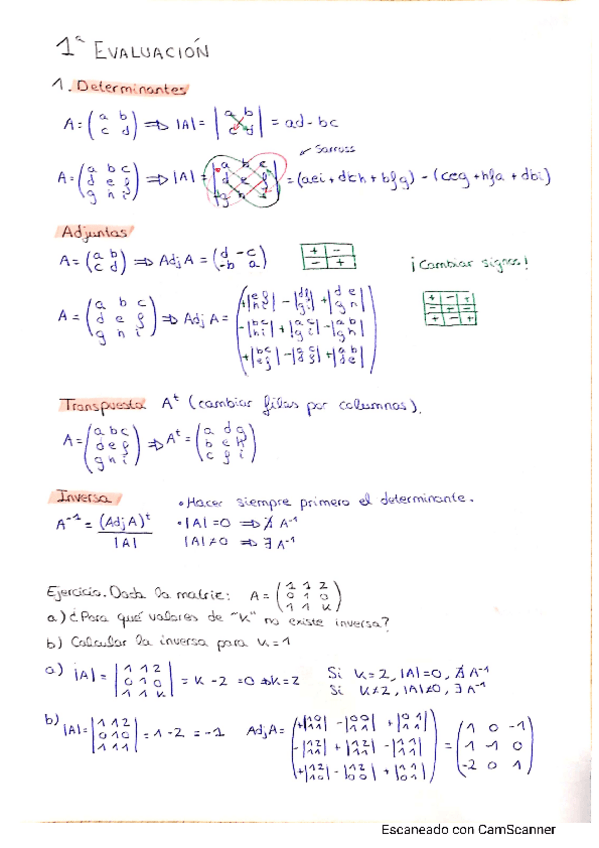 1ª EVALUACIÓN
1. Determinantes
A = (a b / c d) ⇒ |A| = |a b / c d| = ad - bc
Sarrus
A = (a b c / d e f / g h i) ⇒ |A| = |a b c / d e f / g h i| = (aei + dch + bfg) - (ceg + hfa + dbi)
Adjuntas
A = (a b / c d) ⇒ Adj A = (d -c / -b a) + - / - + ¡Cambiar signos!
A = (a b c / d e f / g h i) ⇒ Adj A = (+|e f / h i| -|d f / g i| +|d e / g h| / -|b c / h i| +|a c / g i| -|a b / g h| / +|b c / e f| -|a c / d f| +|a b / d e|) + - + / - + - / + - +
Transpuesta Aᵗ (cambiar filas por columnas).
A = (a b c / d e f / g h i) ⇒ Aᵗ = (a d g / b e h / c f i)
Inversa • Hacer siempre primero el determinante.
A⁻¹ = (Adj A)ᵗ / |A| • |A| = 0 ⇒ ∄ A⁻¹
|A| ≠ 0 ⇒ ∃ A⁻¹
Ejercicio. Dada la matriz: A = (1 1 2 / 0 1 0 / 1 1 k)
a) ¿Para qué valores de "k" no existe inversa?
b) Calcular la inversa para k = 1
a) |A| = |1 1 2 / 0 1 0 / 1 1 k| = k - 2 = 0 ⇒ k = 2 Si k = 2, |A| = 0, ∄ A⁻¹
Si k ≠ 2, |A| ≠ 0, ∃ A⁻¹
b) |A| = |1 1 2 / 0 1 0 / 1 1 1| = 1 - 2 = -1 Adj A = (+|1 0 / 1 1| -|0 0 / 1 1| +|0 1 / 1 1| / -|1 2 / 1 1| +|1 2 / 1 1| -|1 1 / 1 1| / +|1 2 / 1 0| -|1 2 / 0 0| +|1 1 / 0 1|) = (1 0 -1 / 1 -1 0 / -2 0 1)
Escaneado con CamScanner